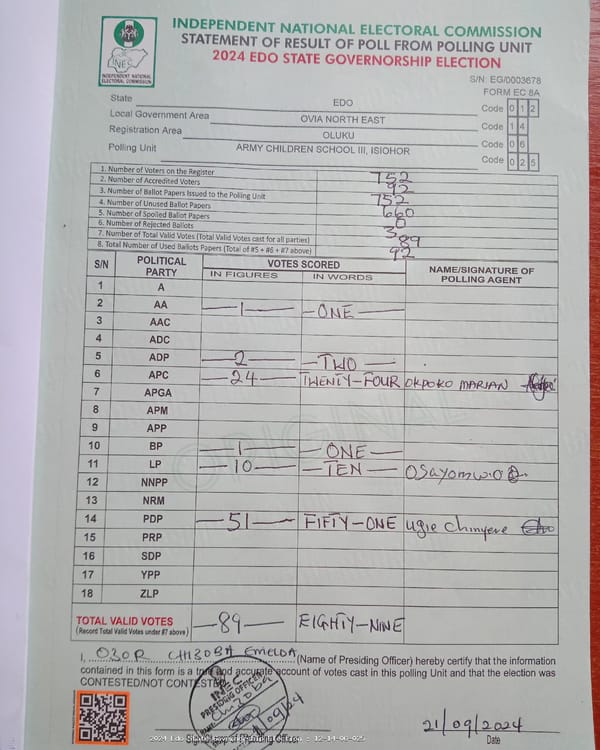 INDEPENDENT NATIONAL ELECTORAL COMMISSION
STATEMENT OF RESULT OF POLL FROM POLLING UNIT
2024 EDO STATE GOVERNORSHIP ELECTION
INEC
INDEPENDENT NATIONAL ELECTORAL COMMISSION
S/N: EG/0003678
FORM EC 8A
State EDO Code 0 1 2
Local Government Area OVIA NORTH EAST Code 1 4
Registration Area OLUKU Code 0 6
Polling Unit ARMY CHILDREN SCHOOL III, ISIOHOR Code 0 2 5
1. Number of Voters on the Register 752
2. Number of Accredited Voters 92
3. Number of Ballot Papers Issued to the Polling Unit 752
4. Number of Unused Ballot Papers 660
5. Number of Spoiled Ballot Papers 0
6. Number of Rejected Ballots 3
7. Number of Total Valid Votes (Total Valid Votes cast for all parties) 89
8. Total Number of Used Ballots Papers (Total of #5 + #6 + #7 above) 92
S/N POLITICAL PARTY VOTES SCORED NAME/SIGNATURE OF POLLING AGENT
IN FIGURES IN WORDS
1 A
2 AA 1 ONE
3 AAC
4 ADC
5 ADP 2 TWO
6 APC 24 TWENTY-FOUR OKPOKO MARIAN
7 APGA
8 APM
9 APP
10 BP 1 ONE
11 LP 10 TEN Osayomwo
12 NNPP
13 NRM
14 PDP 51 FIFTY-ONE ugie chinyere
15 PRP
16 SDP
17 YPP
18 ZLP
ORIGINAL
TOTAL VALID VOTES 89 EIGHTY-NINE
(Record Total Valid Votes under #7 above)
I, OZOR CHIZOBA EMELDA (Name of Presiding Officer) hereby certify that the information
contained in this form is a true and accurate account of votes cast in this polling Unit and that the election was
CONTESTED/NOT CONTESTED
INEC
PRESIDING OFFICER
21/09/2024
Date